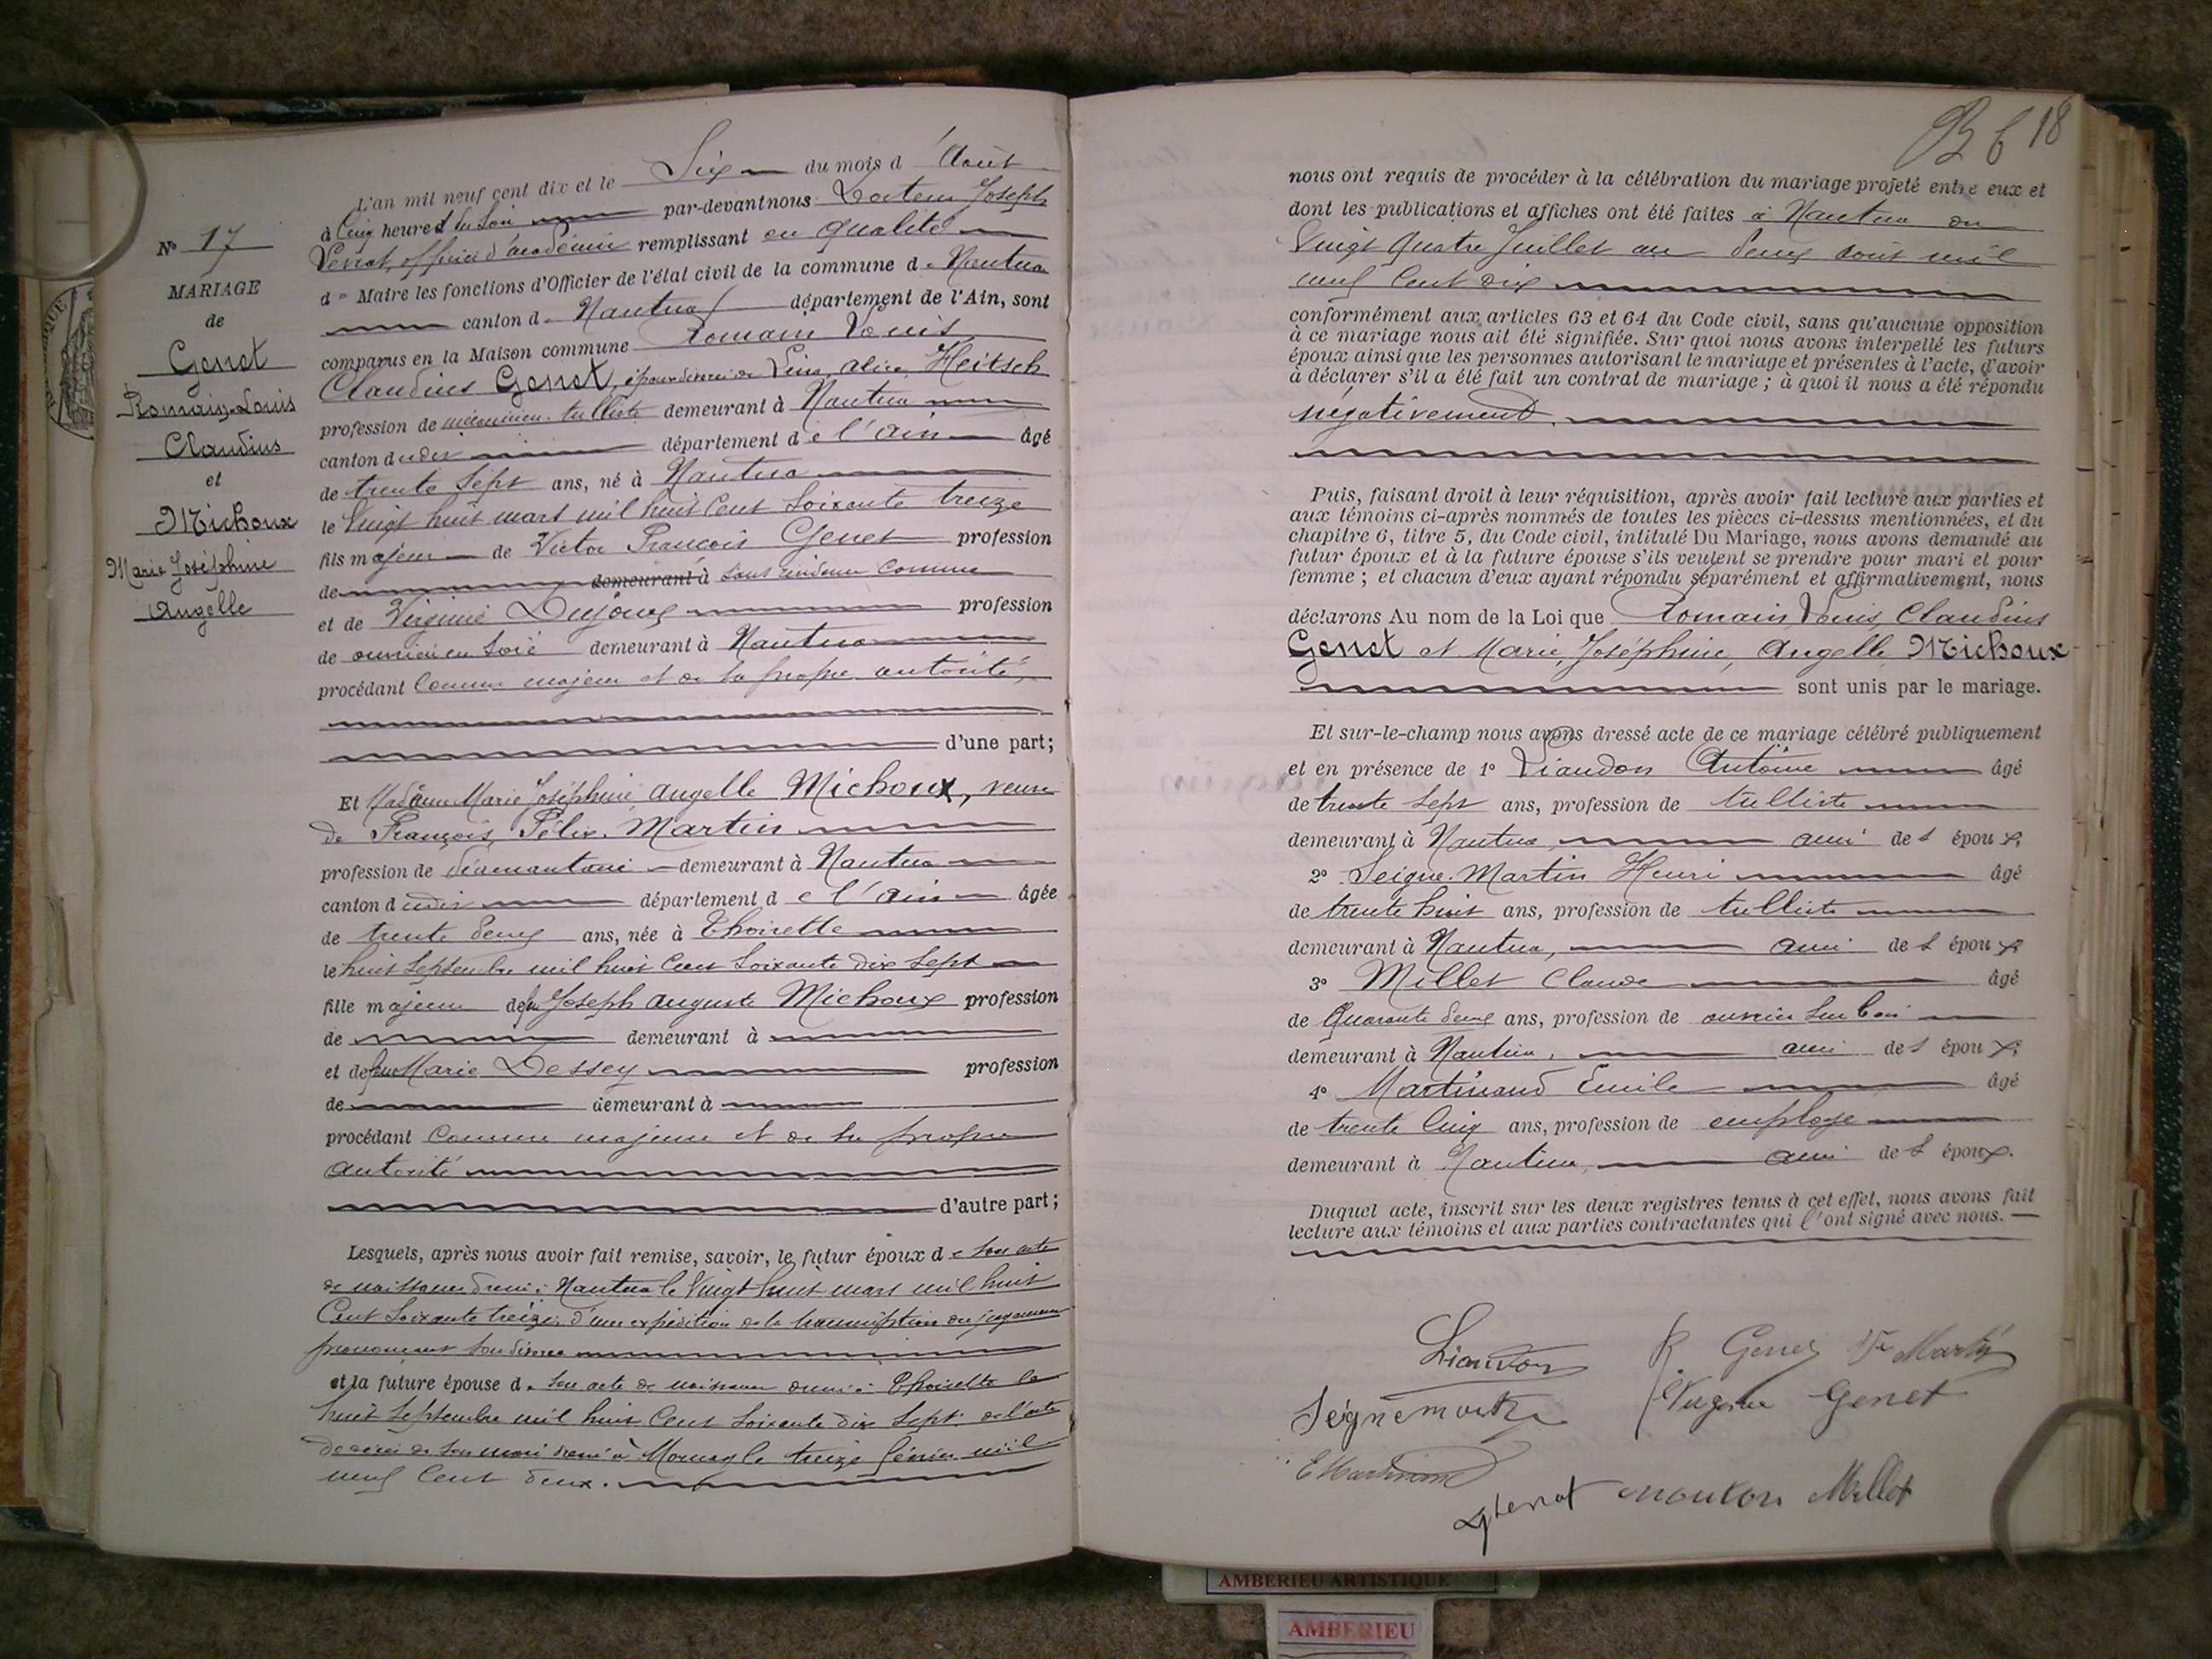 L'an mil neuf cent dix et le Six du mois d'Août
à Cinq heures du Soir par-devant nous Docteur Joseph
officier d'académie remplissant en qualité
de Maire les fonctions d'Officier de l'état civil de la commune de Nantua
canton de Nantua département de l'Ain, sont
comparus en la Maison commune Romain Louis
Claudius Genet, époux divorcé de Lina, Alice Heitsch
profession de mécanicien tulliste demeurant à Nantua
canton dudit département de l'Ain âgé
de trente Sept ans, né à Nantua
le Vingt huit mars mil huit Cent Soixante treize
fils majeur de Victor François Genet profession
de demeurant à Sans résidence Connue
et de Virginie Dujoux profession
de ouvrière en Soie demeurant à Nantua
procédant Comme majeur et de sa propre autorité,
d'une part;
Et Madame Marie Joséphine Angelle Michoux, veuve
de François, Félix Martin
profession de diamantaire demeurant à Nantua
canton dudit département de l'Ain âgée
de trente deux ans, née à Thoirette
le huit Septembre mil huit Cent Soixante Dix Sept
fille majeure de feu Joseph Auguste Michoux profession
de demeurant à
et de feue Marie Dessey profession
de demeurant à
procédant Comme majeure et de sa propre
autorité
d'autre part;
Lesquels, après nous avoir fait remise, savoir, le futur époux de Son acte
de naissance dressé à Nantua le Vingt huit mars mil huit
Cent Soixante treize, d'une expédition de la transcription du jugement
prononçant Son divorce
et la future épouse de Son acte de naissance dressé à Thoirette le
huit Septembre mil huit Cent Soixante Dix Sept de l'acte
de décès de Son mari dressé à Mornay le treize février mil
neuf Cent deux.
N° 17
MARIAGE
de
Genet
Romain-Louis
Claudius
et
Michoux
Marie Joséphine
Angelle
18
nous ont requis de procéder à la célébration du mariage projeté entre eux et
dont les publications et affiches ont été faites à Nantua du
Vingt Quatre Juillet au deux août mil
neuf Cent dix
conformément aux articles 63 et 64 du Code civil, sans qu'aucune opposition
à ce mariage nous ait été signifiée. Sur quoi nous avons interpellé les futurs
époux ainsi que les personnes autorisant le mariage et présentes à l'acte, d'avoir
à déclarer s'il a été fait un contrat de mariage ; à quoi il nous a été répondu
négativement.
Puis, faisant droit à leur réquisition, après avoir fait lecture aux parties et
aux témoins ci-après nommés de toutes les pièces ci-dessus mentionnées, et du
chapitre 6, titre 5, du Code civil, intitulé Du Mariage, nous avons demandé au
futur époux et à la future épouse s'ils veulent se prendre pour mari et pour
femme ; et chacun d'eux ayant répondu séparément et affirmativement, nous
déclarons Au nom de la Loi que Romain, Louis, Claudius
Genet et Marie, Joséphine, Angelle Michoux
sont unis par le mariage.
Et sur-le-champ nous avons dressé acte de ce mariage célébré publiquement
et en présence de 1° Liaudon Antoine âgé
de trente Sept ans, profession de tulliste
demeurant à Nantua, ami des époux;
2° Seigne-Martin Henri âgé
de trente huit ans, profession de tulliste
demeurant à Nantua, ami des époux
3° Millet Claude âgé
de Quarante deux ans, profession de ouvrier sur bois
demeurant à Nantua, ami des époux;
4° Martinand Emile âgé
de trente Cinq ans, profession de employé
demeurant à Nantua, ami des époux.
Duquel acte, inscrit sur les deux registres tenus à cet effet, nous avons fait
lecture aux témoins et aux parties contractantes qui l'ont signé avec nous.
Liaudon R Genet Vve Martin
Seignemartin Virginie Genet
E Martinand
Millet
AMBERIEU ARTISTIQUE
AMBERIEU